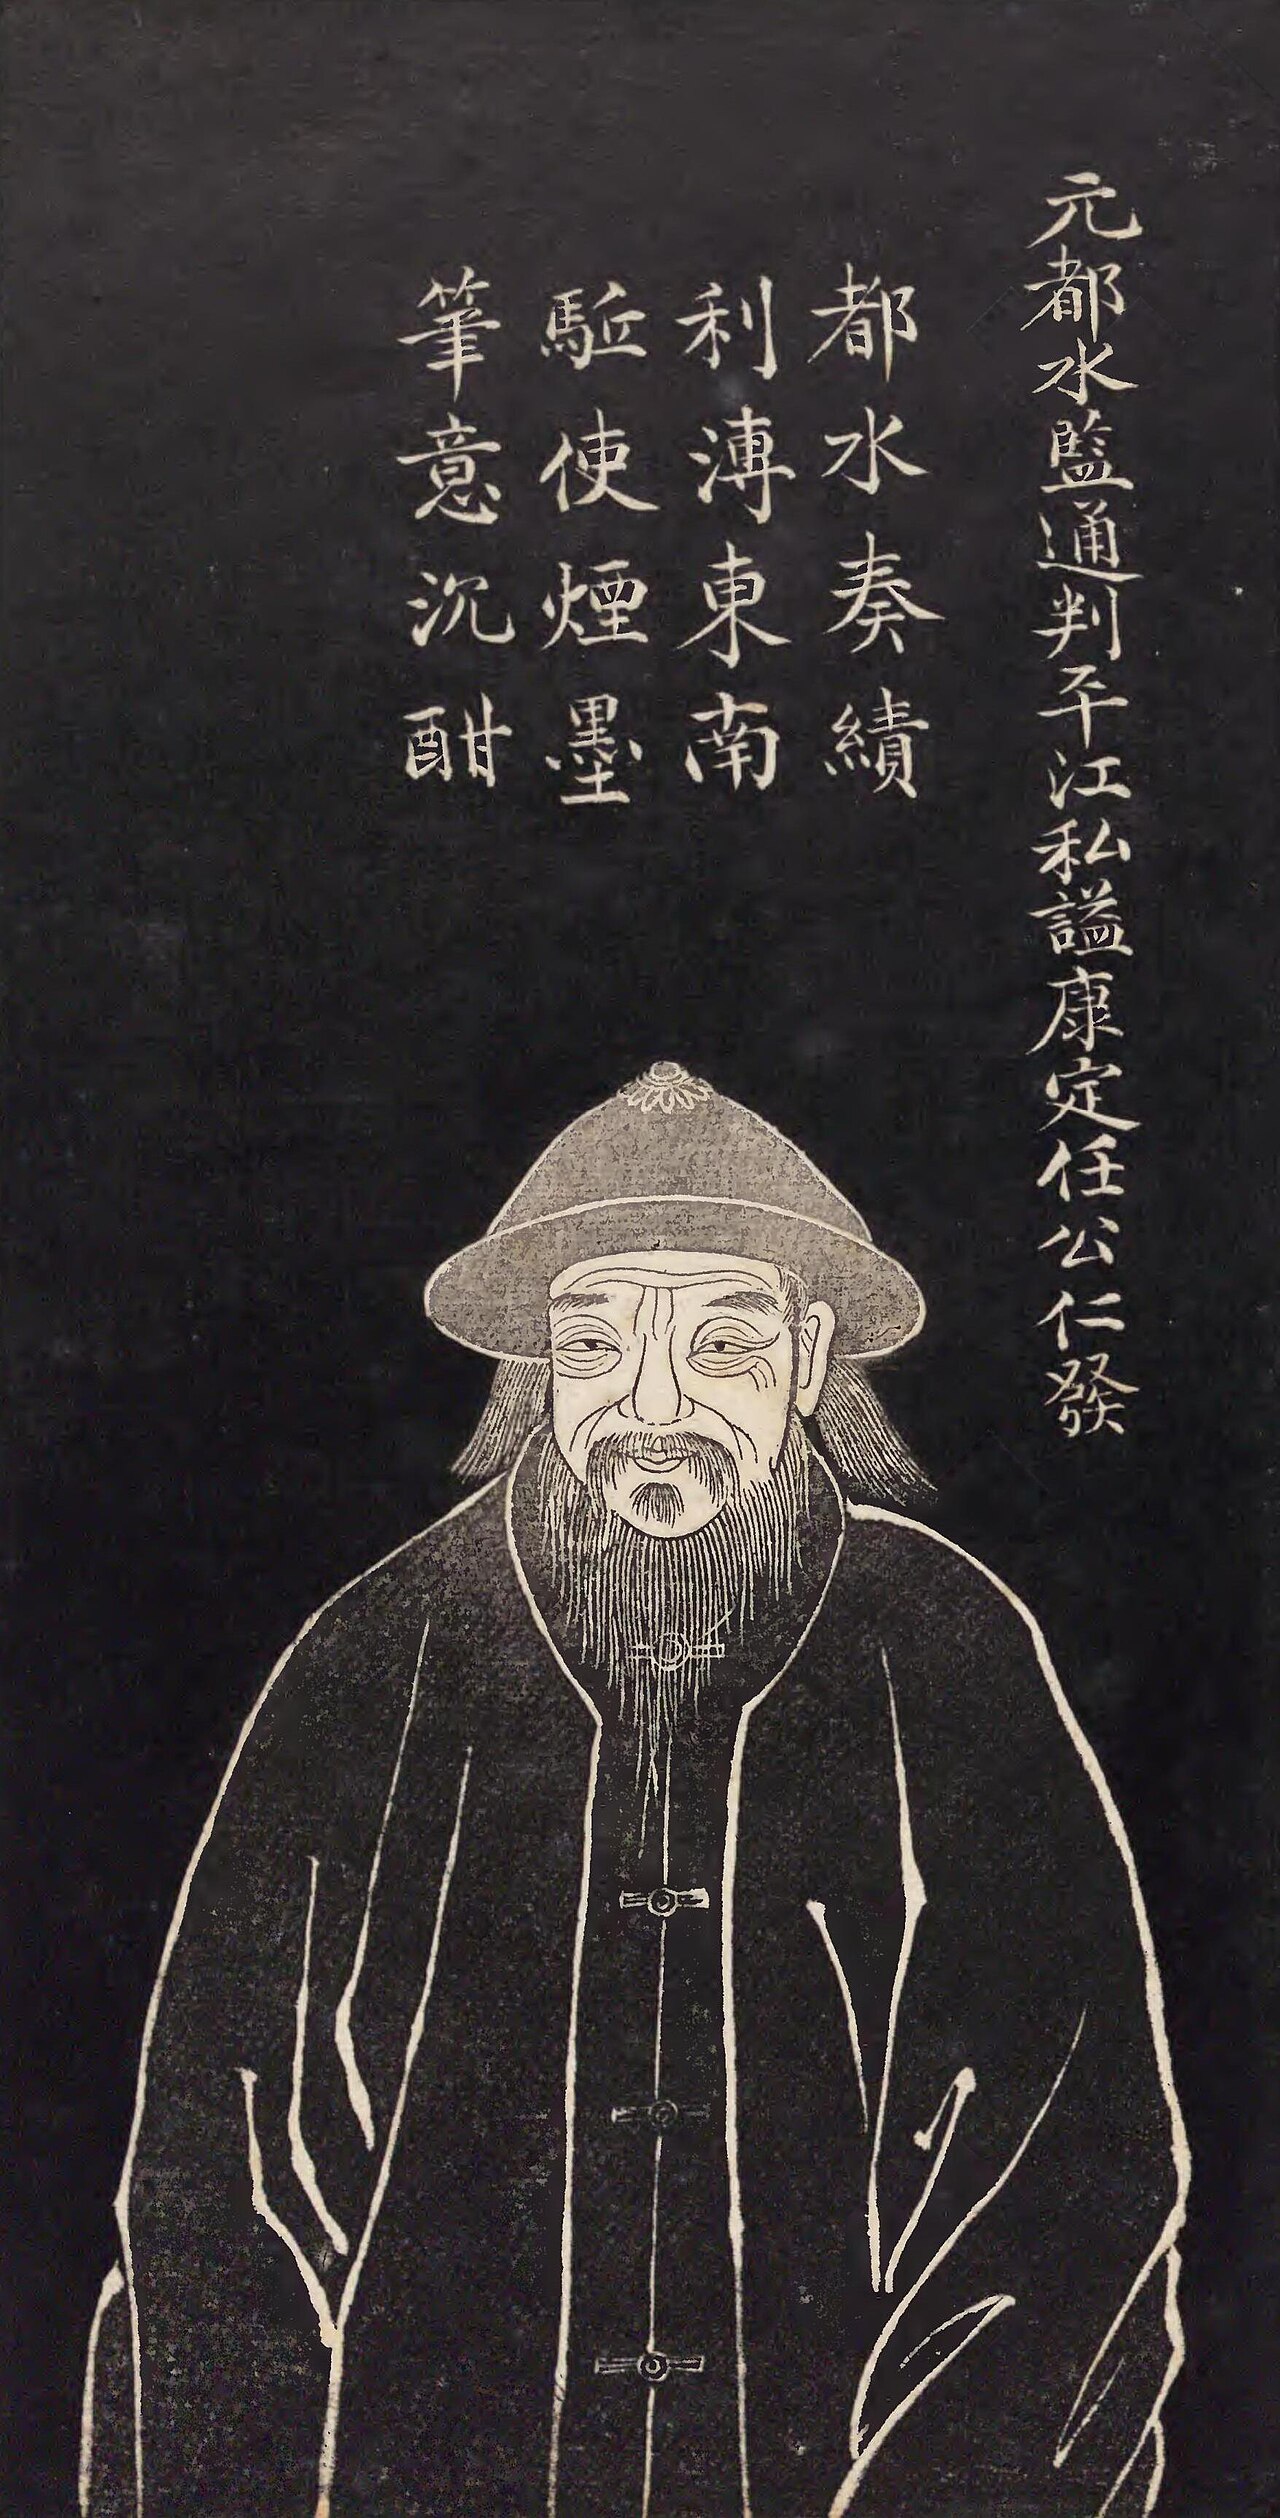 元都水監通判平江私謚康定任公仁發
都水奏績
利溥東南
駈使煙墨
筆意沉酣